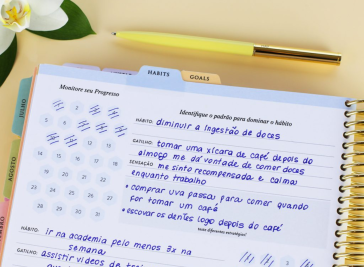 HABITS
GOALS
JULHO
AGOSTO
Monitore seu Progresso
Identifique o padrão para dominar o hábito
HÁBITO: diminuir a ingestão de doces
GATILHO: tomar uma xícara de café depois do
almoço me dá vontade de comer doces
SENSAÇÃO: me sinto recompensada e calma
enquanto trabalho
• comprar uva passa para comer quando
for tomar um café
• escovar os dentes logo depois do café
teste diferentes estratégias!
14 15 16 17 18
19 20 21 22 23
24 25 26 27
28 29 30 31
HÁBITO: ir na academia pelo menos 3x na
semana
GATILHO: assistir vídeos de